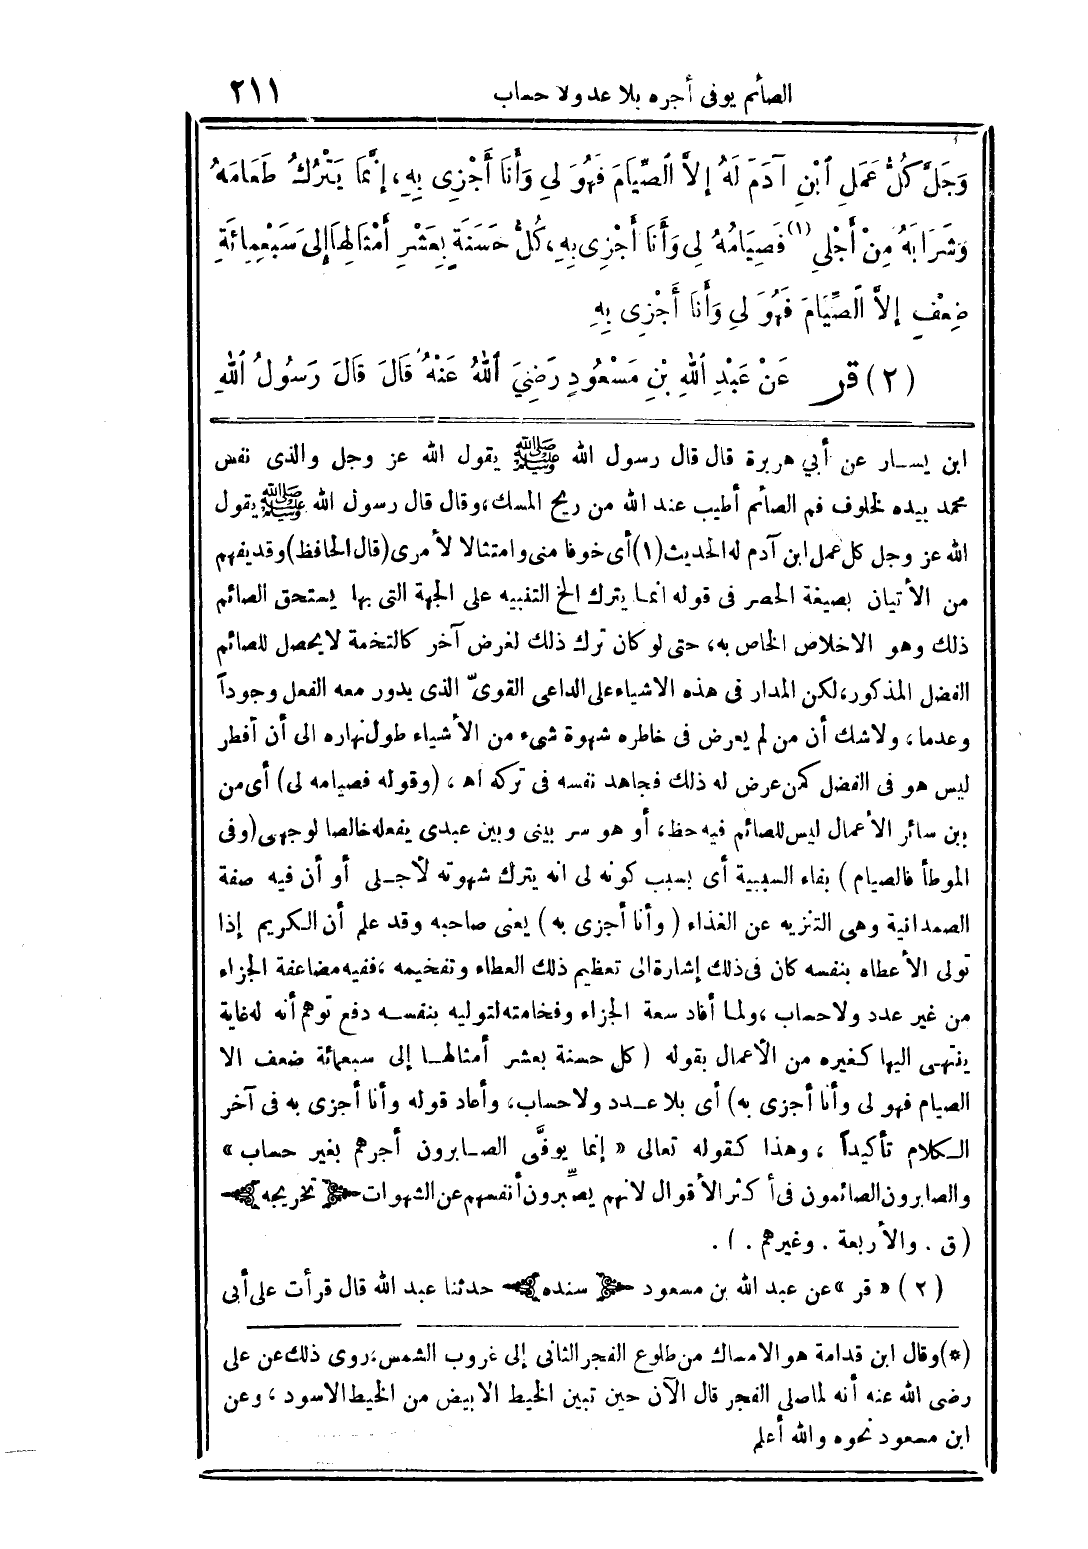 الصائم يوفى أجره بلا عد ولا حساب ٢١١
وَجَلَّ كُلُّ عَمَلِ ٱبْنِ آدَمَ لَهُ إِلاَّ الصِّيَامَ فَهُوَ لِي وَأَنَا أَجْزِى بِهِ، إِنَّمَا يَتْرُكُ طَعَامَهُ
وَشَرَابَهُ مِنْ أَجْلِي (١) فَصِيَامُهُ لِى وَأَنَا أَجْزِى بِهِ، كُلُّ حَسَنَةٍ بِعَشْرِ أَمْثَالِهَا إِلىَ سَبْعِمِائَةِ
ضِعْفٍ إِلاَّ الصِّيَامَ فَهُوَ لِي وَأَنَا أَجْزِى بِهِ
(٢) قر عَنْ عَبْدِ اللهِ بْنِ مَسْعُودٍ رَضِيَ اللهُ عَنْهُ قَالَ قَالَ رَسُولُ اللهِ
ابن يسار عن أبي هريرة قال قال رسول الله ﷺ يقول الله عز وجل والذى نفس
محمد بيده لخلوف فم الصائم أطيب عند الله من ريح المسك، وقال قال رسول الله ﷺ يقول
الله عز وجل كل عمل ابن آدم له الحديث (١) أى خوفا منى وامتثالا لأمرى (قال الحافظ) وقد يفهم
من الأتيان بصيغة الحصر فى قوله انما يترك الخ التنبيه على الجهة التى بها يستحق الصائم
ذلك وهو الاخلاص الخاص به، حتى لو كان ترك ذلك لغرض آخر كالتخمة لا يحصل للصائم
الفضل المذكور، لكن المدار فى هذه الاشياء على الداعى القوىّ الذى يدور معه الفعل وجوداً
وعدما، ولاشك أن من لم يعرض فى خاطره شهوة شىء من الأشياء طول نهاره الى أن أفطر
ليس هو فى الفضل كمن عرض له ذلك فجاهد نفسه فى تركه اهـ، (وقوله فصيامه لى) أى من
بين سائر الأعمال ليس للصائم فيه حظ، أو هو سر بينى وبين عبدى يفعله خالصا لوجهى (وفى
الموطأ فالصيام) بفاء السببية أى بسبب كونه لى انه يترك شهوته لأجلى أو أن فيه صفة
الصمدانية وهى التنزيه عن الغذاء (وأنا أجزى به) يعنى صاحبه وقد علم أن الكريم إذا
تولى الأعطاء بنفسه كان فى ذلك إشارة الى تعظيم ذلك العطاء وتفخيمه، ففيه مضاعفة الجزاء
من غير عدد ولا حساب، ولما أفاد سعة الجزاء وفخامته لتوليه بنفسه دفع توهم أنه له غاية
ينتهى اليها كغيره من الأعمال بقوله (كل حسنة بعشر أمثالها إلى سبعمائة ضعف الا
الصيام فهو لى وأنا أجزى به) أى بلا عدد ولا حساب، وأعاد قوله وأنا أجزى به فى آخر
الكلام تأكيداً، وهذا كقوله تعالى « إنما يوفَّى الصابرون أجرهم بغير حساب »
والصابرون الصائمون فى أكثر الأقوال لانهم يصبّرون أنفسهم عن الشهوات تخريجه
(ق . والأربعة . وغيرهم . ) .
(٢) « قر » عن عبد الله بن مسعود سنده حدثنا عبد الله قال قرأت على أبى
(*) وقال ابن قدامة هو الامساك من طلوع الفجر الثانى إلى غروب الشمس، روى ذلك عن على
رضى الله عنه أنه لما صلى الفجر قال الآن حين تبين الخيط الابيض من الخيط الاسود، وعن
ابن مسعود نحوه والله أعلم